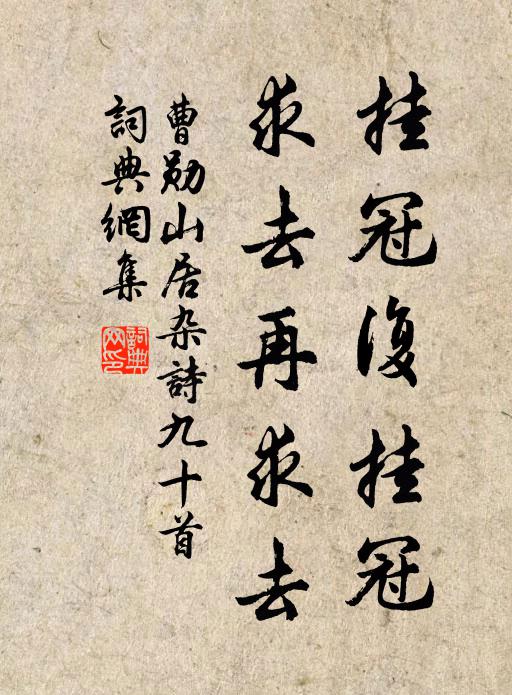 挂冠復挂冠
求去再求去
曹勛山居杂詩九十首
詞典網集
詞典网印